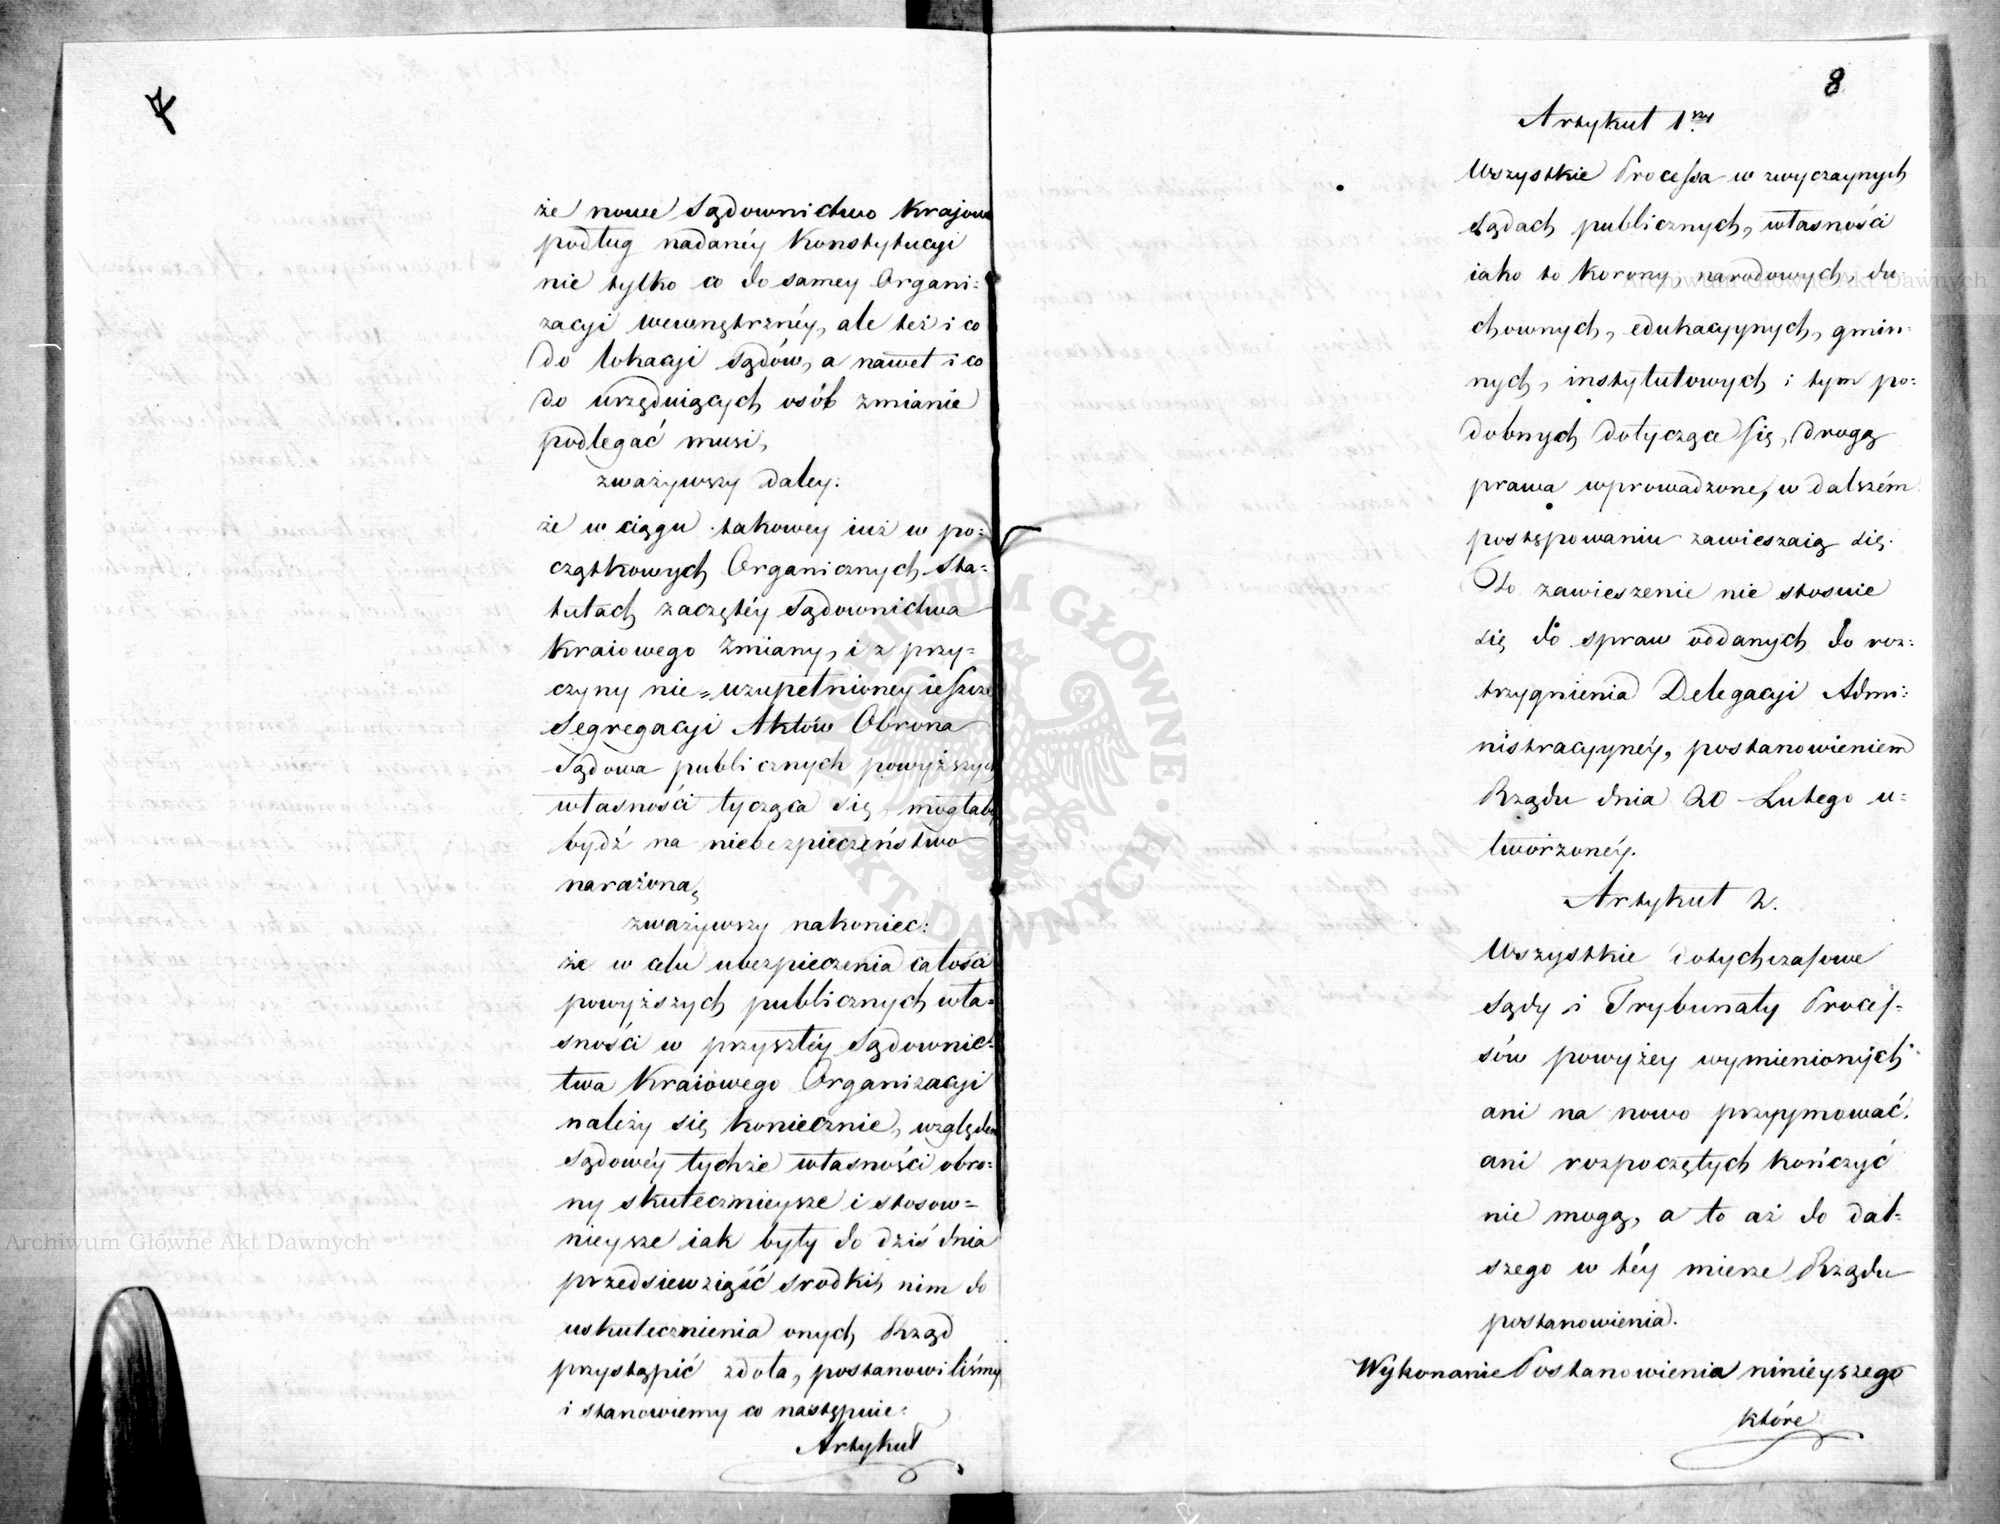 7
że nowe Sądownictwo Krajowe
podług nadanéy Konstytucyi
nie tylko co do samey Organi:
zacyi wewnętrznéy, ale też i co
do lokacyi Sądów, a nawet i co
do urzęduiących osób zmianie
podlegać musi,
zważywszy daley:
że w ciągu takowey iuż w po:
czątkowych Organicznych Sta:
tutach zaczętéy Sądownictwa
Kraiowego Zmiany, i z przy:
czyny nie=uzupełnioney ieszcze
Segregacyi Aktów Obrona
Sądowa publicznych powyższych
własności tycząca się, mogłaby
bydź na niebezpieczeństwo
narażona,
zważywszy nakoniec:
że w celu ubezpieczenia całości
powyższych publicznych wła:
sności w przyszłéy Sądownic:
twa Kraiowego Organizacyi
należy się koniecznie, względem
Sądowéy tychże własności obro:
ny skutecznieysze i stosow=
nieysze iak były do dziś dnia
przedsiewziąść srodki, nim do
uskutecznienia onych Rząd
przystąpić zdoła, postanowiliśmy
i stanowiemy co następuie:
Artykuł
8
Artykuł 1ny
Wszystkie Processa w zwyczaynych
Sądach publicznych, własności
iako to Korony, narodowych, du
chownych, edukacyynych, gmin:
nych, instytutowych i tym po:
dobnych dotyczące się, drogą
prawa wprowadzone, w dalszém
postępowaniu zawieszaią się.
To zawieszenie nie stosuie
się do spraw oddanych do roz:
trzygnienia Delegacyi Admi:
nistracyynéy, postanowieniem
Rządu dnia 20 Lutego u:
tworzonéy.
Artykuł 2.
Wszystkie dotychczasowe
Sądy i Trybunały Proces-
sów powyżey wymienionych
ani na nowo przyymować.
ani rozpoczętych kończyć
nie mogą, a to aż do dal:
szego w téy mierze Rządu
postanowienia.
Wykonanie Postanowienia ninieyszego
które
Archiwum Główne Akt Dawnych
Archiwum Główne Akt Dawnych
ARCHIWUM GŁÓWNE AKT DAWNYCH